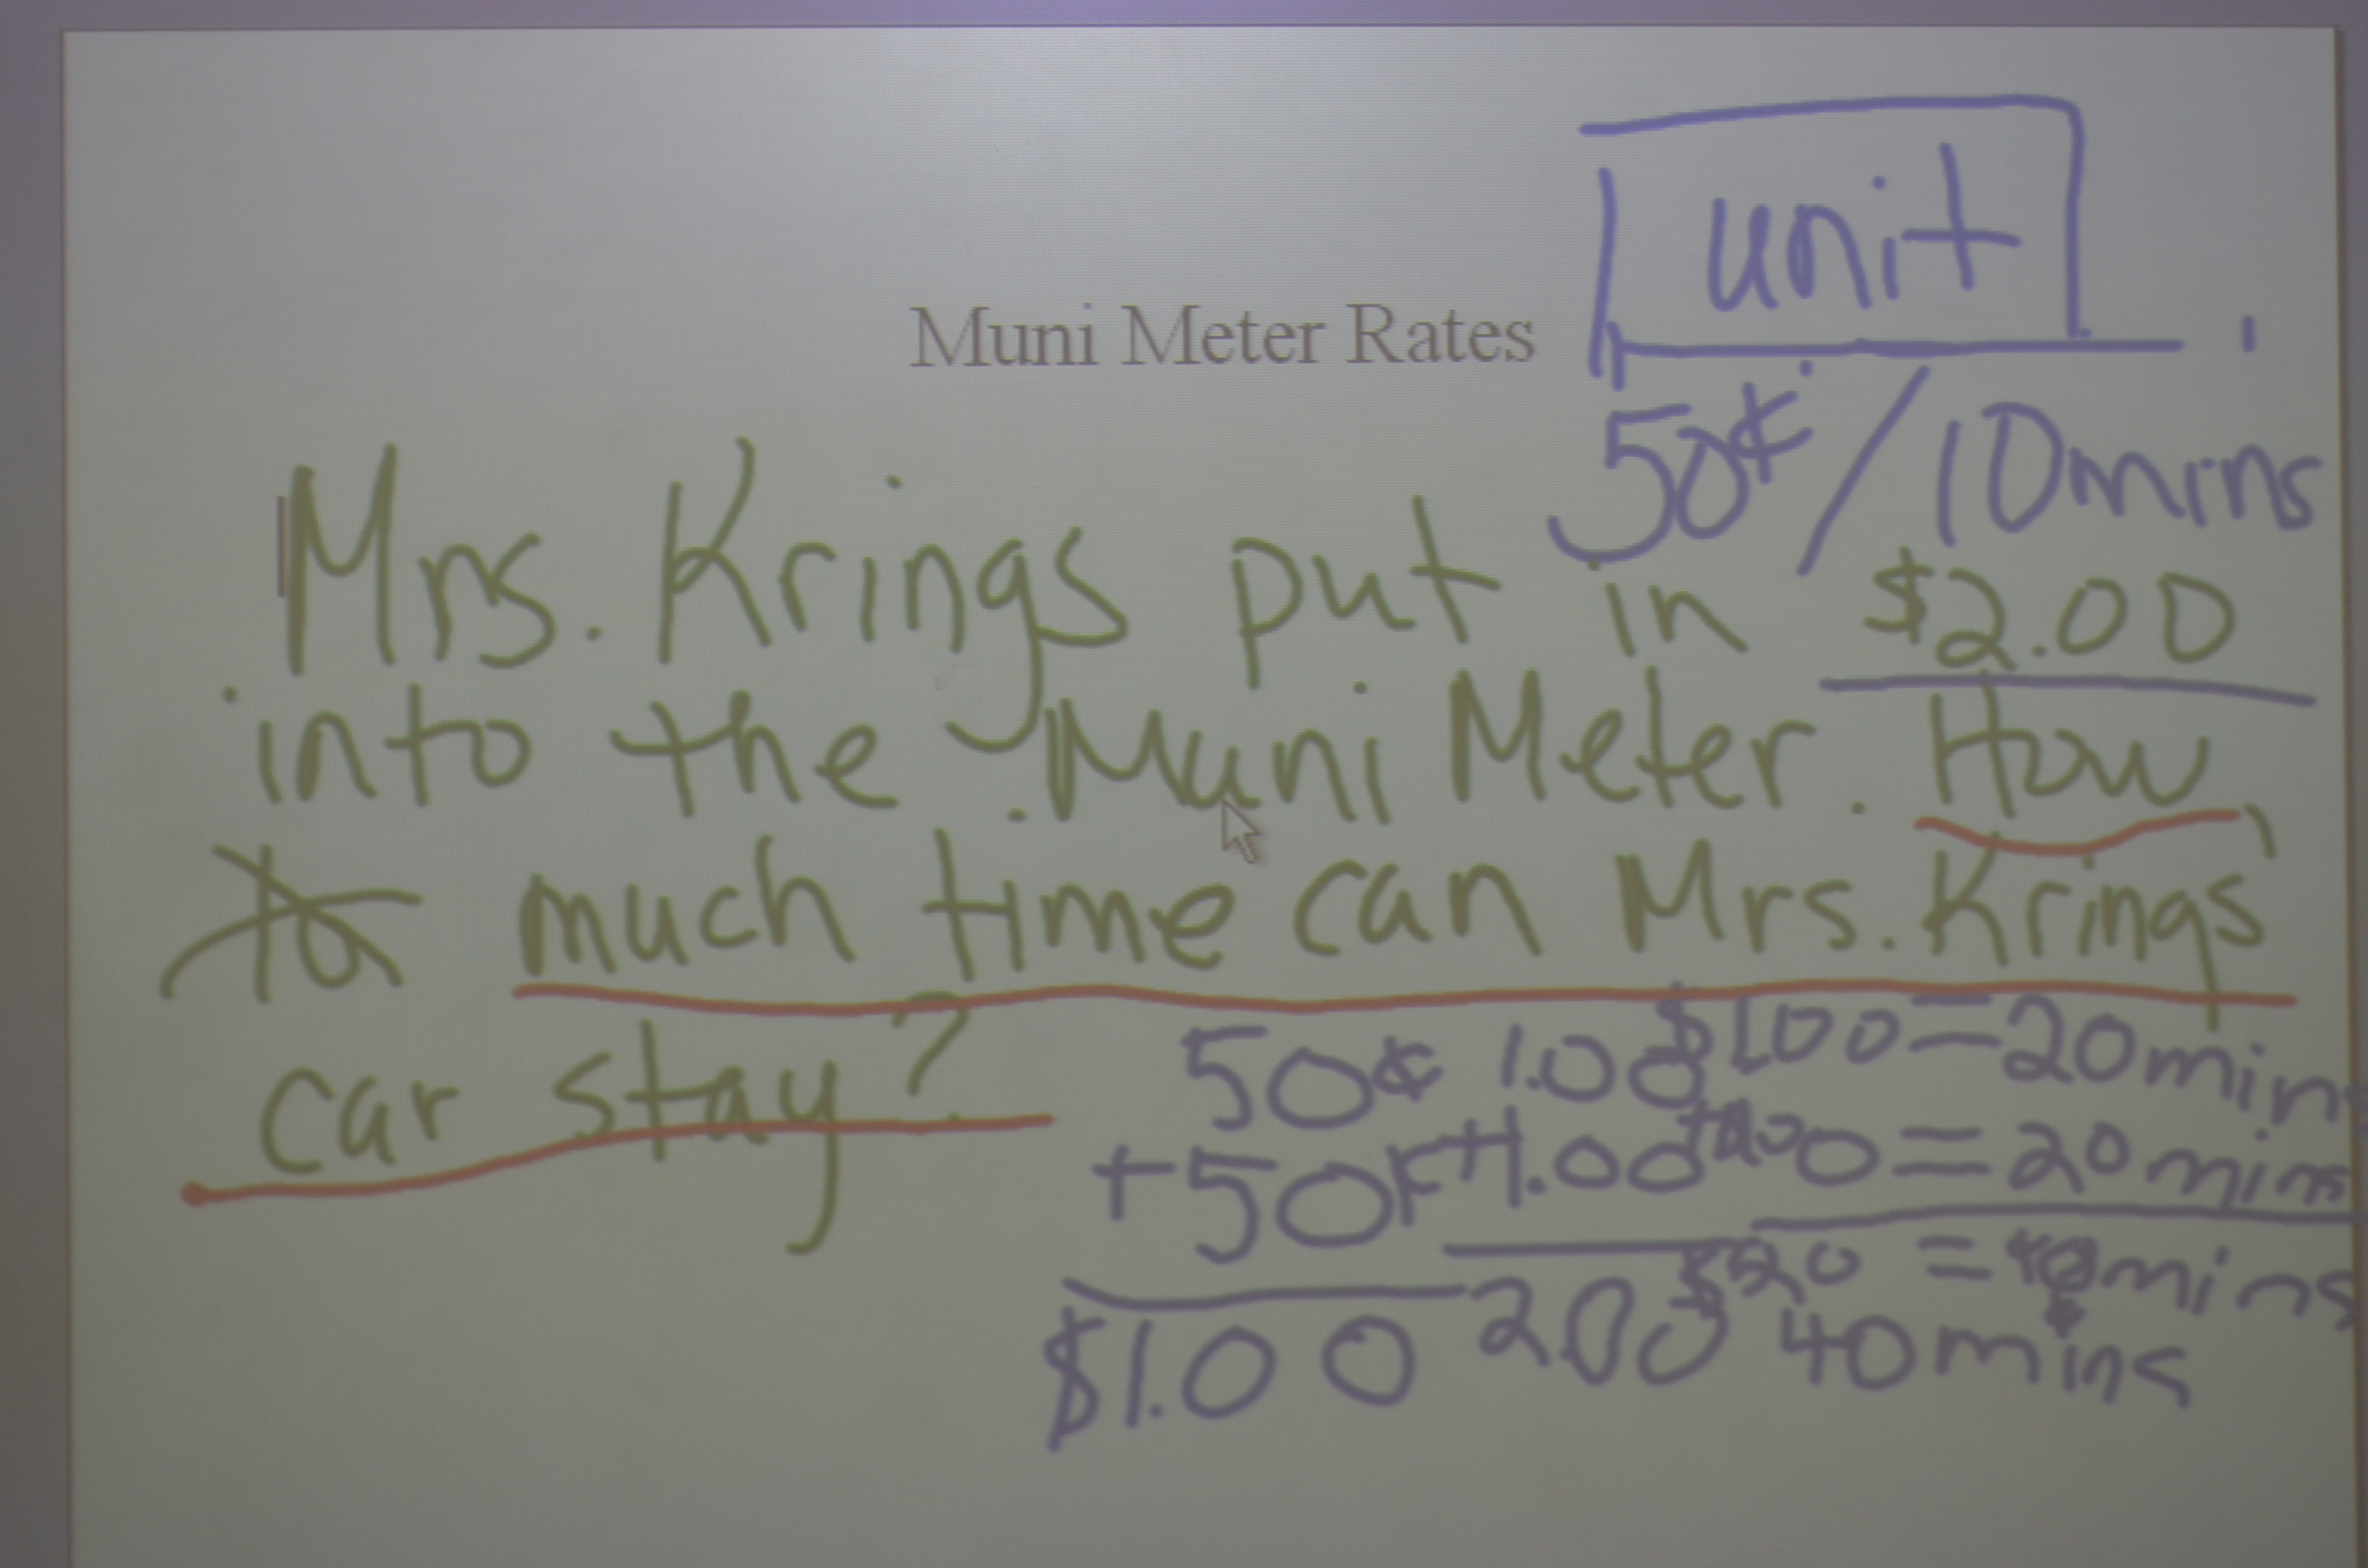 unit
Muni Meter Rates
50¢/10mins
Mrs. Krings put in $2.00
into the Muni Meter. How
much time can Mrs. Krings
car stay?
50¢ 1.00 $1.00 = 20mins
+50¢ +1.00 = 20mins
$1.00 2.00 = 40mins
40mins